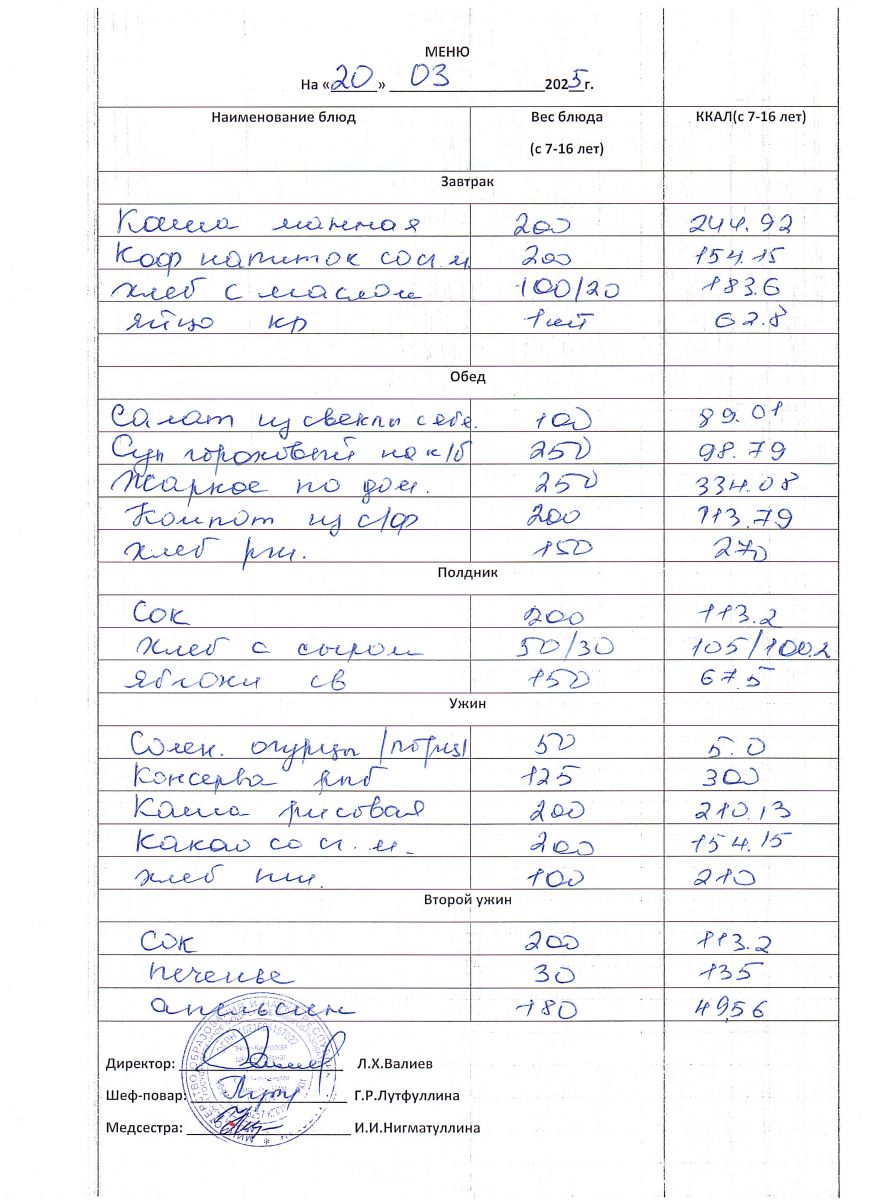 МЕНЮ
На «20» 03 2025г.
Наименование блюд Вес блюда (с 7-16 лет) ККАЛ(с 7-16 лет)
Завтрак
Каша манная 200 244.92
Коф напиток со сг.м. 200 154.15
Хлеб с маслом 100/20 183.6
Яйцо кр 1шт 62.8
Обед
Салат из свеклы с яб. 100 89.01
Суп гороховый на к/б 250 98.79
Жаркое по дом. 250 334.08
Компот из с/ф 200 113.79
Хлеб рж. 150 270
Полдник
Сок 200 113.2
Хлеб с сыром 50/30 105/100.2
Яблоки св 150 67.5
Ужин
Солен. огурцы 50 5.0
Консерва рыб 125 300
Каша рисовая 200 210.13
Какао со сг. м. 200 154.15
Хлеб пш. 100 210
Второй ужин
Сок 200 113.2
Печенье 30 135
апельсин 180 49,56
Директор: Л.Х.Валиев
Шеф-повар: Г.Р.Лутфуллина
Медсестра: И.И.Нигматуллина